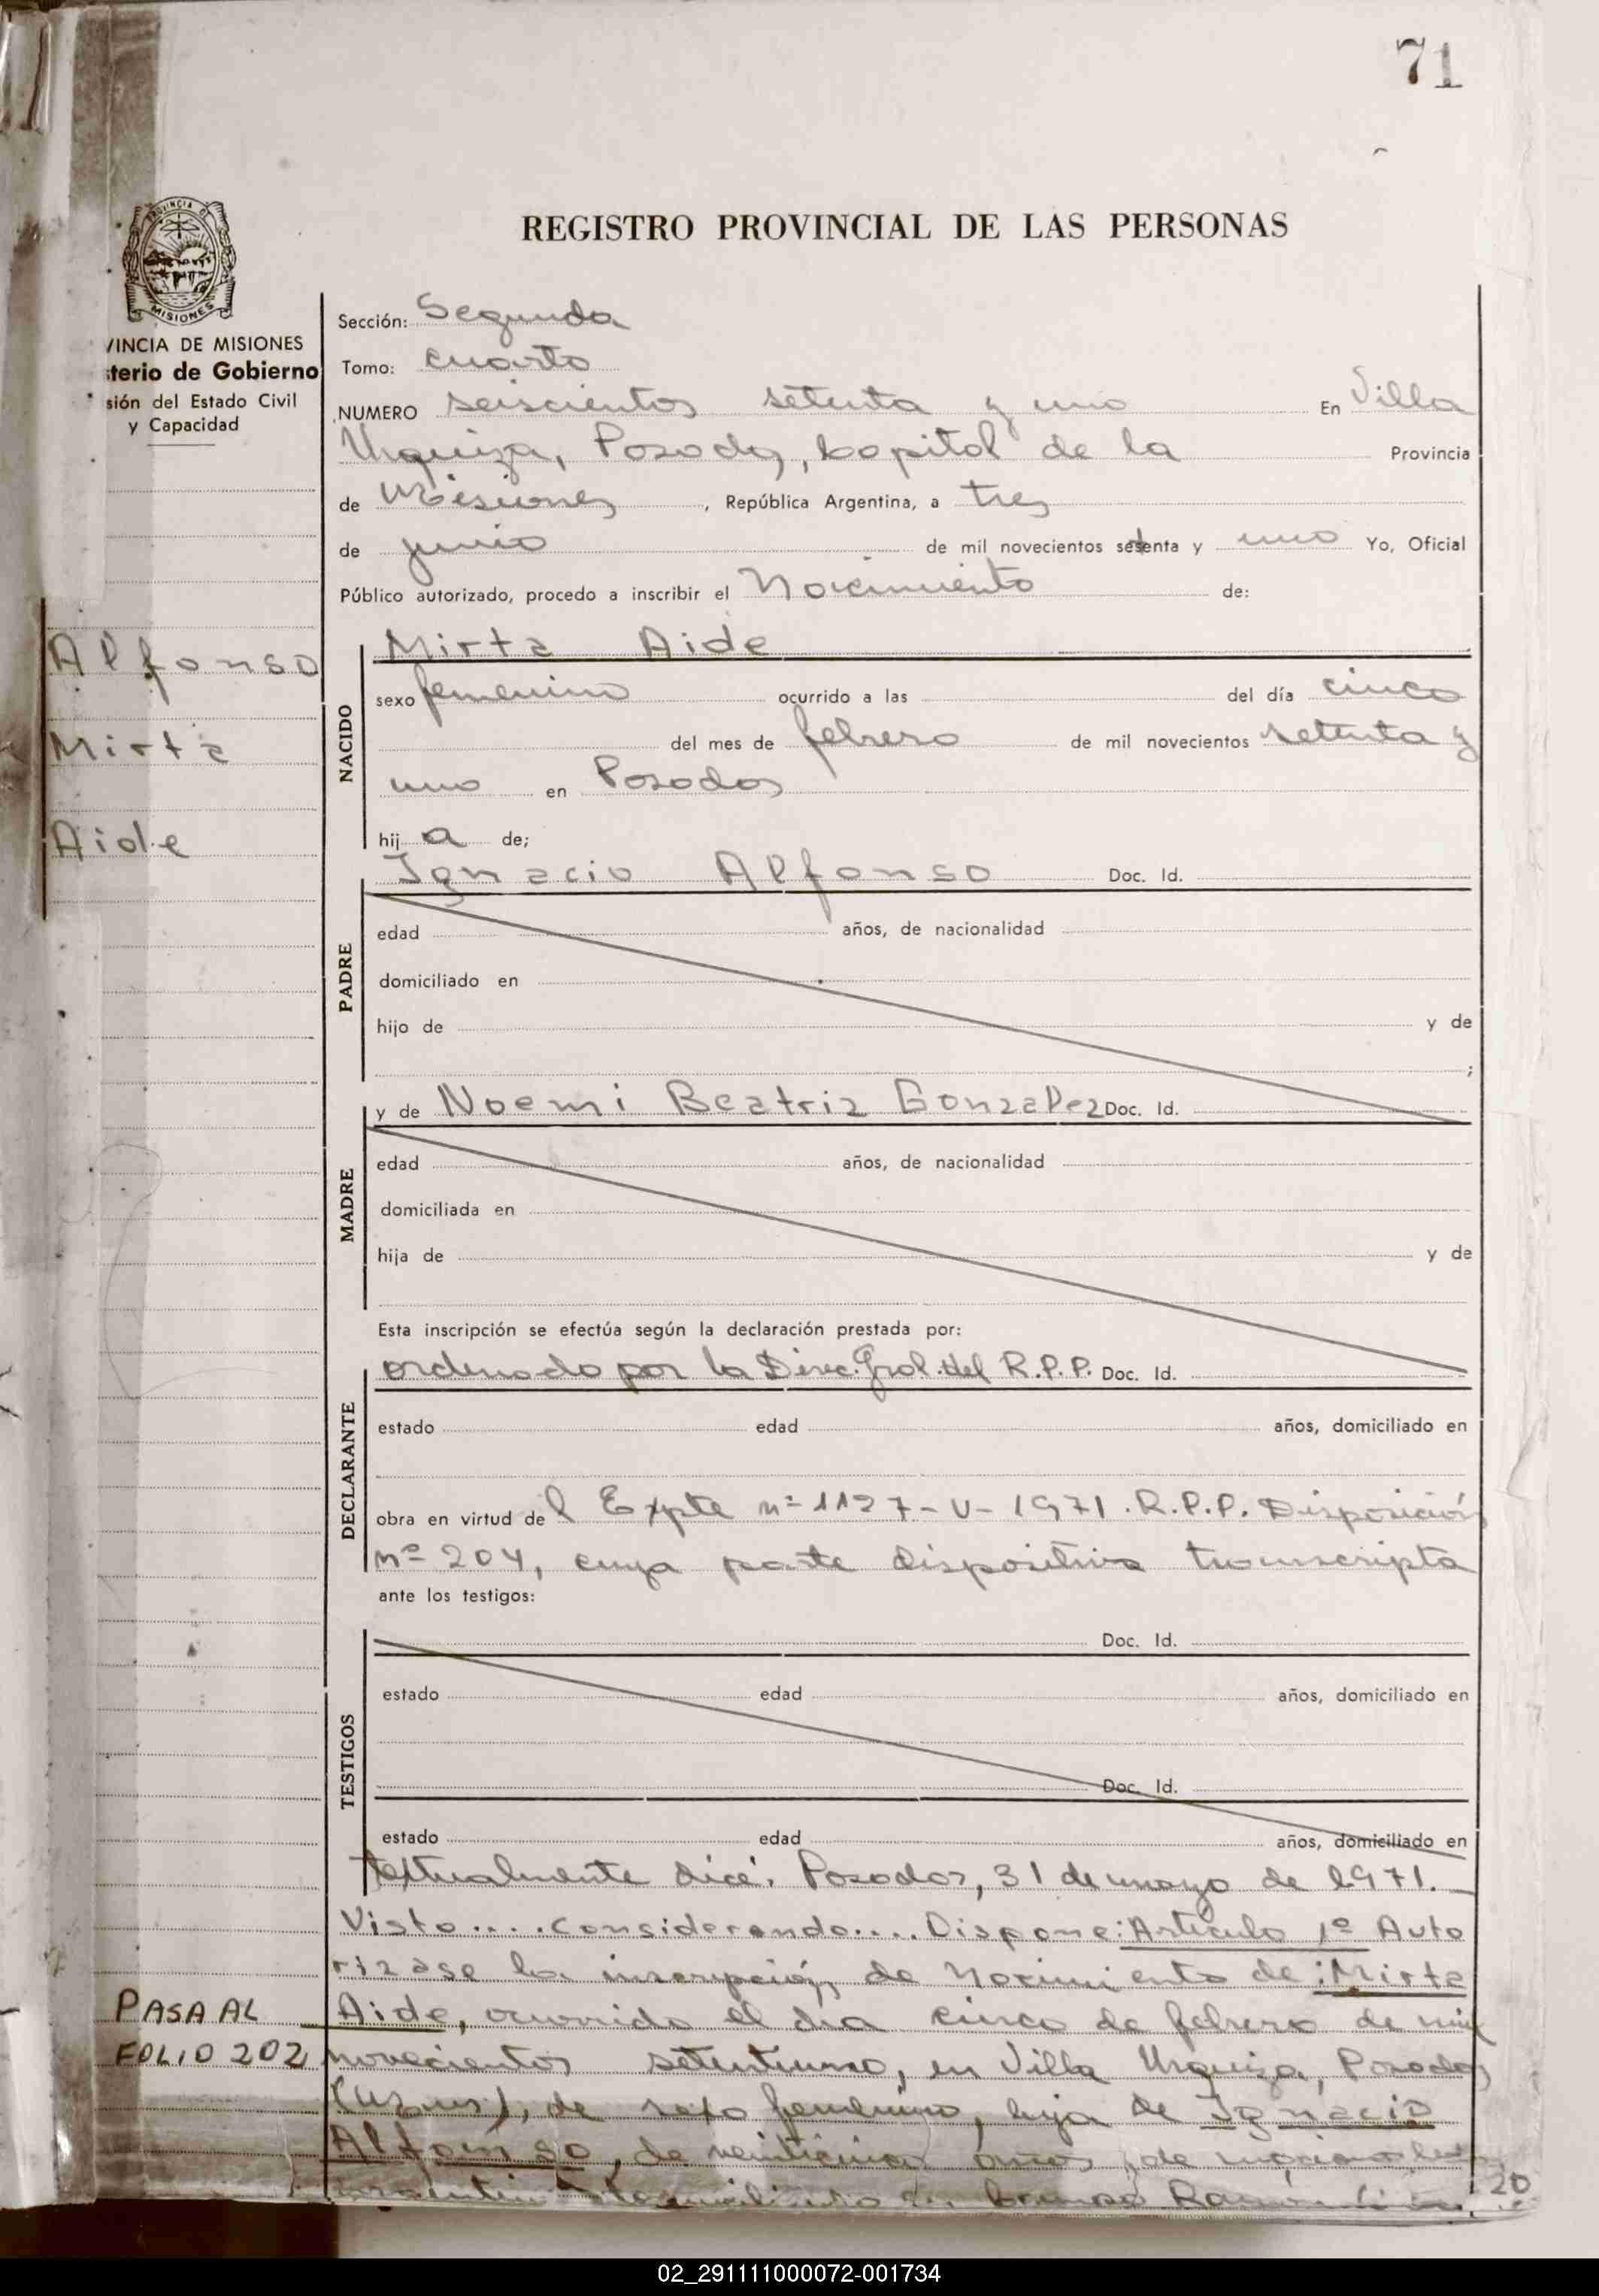 71
REGISTRO PROVINCIAL DE LAS PERSONAS
PROVINCIA D
MISIONES
VINCIA DE MISIONES
sterio de Gobierno
sión del Estado Civil
y Capacidad
Sección: Segunda
Tomo: cuarto
NUMERO seiscientos setenta y uno En Villa
Urquiza, Posadas, Capital de la Provincia
de Misiones, República Argentina, a tres
de junio de mil novecientos setenta y uno Yo, Oficial
Público autorizado, procedo a inscribir el Nacimiento de:
Alfonso
Mirta
Aide
NACIDO
Mirta Aide
sexo femenino ocurrido a las del día cinco
del mes de febrero de mil novecientos setenta y
uno en Posadas
hija de;
PADRE
Ignacio Alfonso Doc. Id.
edad años, de nacionalidad
domiciliado en
hijo de y de
;
MADRE
y de Noemi Beatriz Gonzalez Doc. Id.
edad años, de nacionalidad
domiciliada en
hija de y de
Esta inscripción se efectúa según la declaración prestada por:
DECLARANTE
ordenado por la Direc. Gral. del R.P.P. Doc. Id.
estado edad años, domiciliado en
obra en virtud del Expte nº 1127-V-1971. R.P.P. Disposición
nº 204, cuya parte dispositiva transcripta
ante los testigos:
TESTIGOS
Doc. Id.
estado edad años, domiciliado en
Doc. Id.
estado edad años, domiciliado en
textualmente dice: Posadas, 31 de mayo de 1971.
Visto.... Considerando.... Dispone: Artículo 1º Auto
rizase la inscripción de nacimiento de: Mirta
Aide, ocurrido el dia cinco de febrero de mil
novecientos setentiuno, en Villa Urquiza, Posadas
de sexo femenino, hija de Ignacio
Alfonso, de años, de
domiciliado en
PASA AL
FOLIO 202
20
02_291111000072-001734